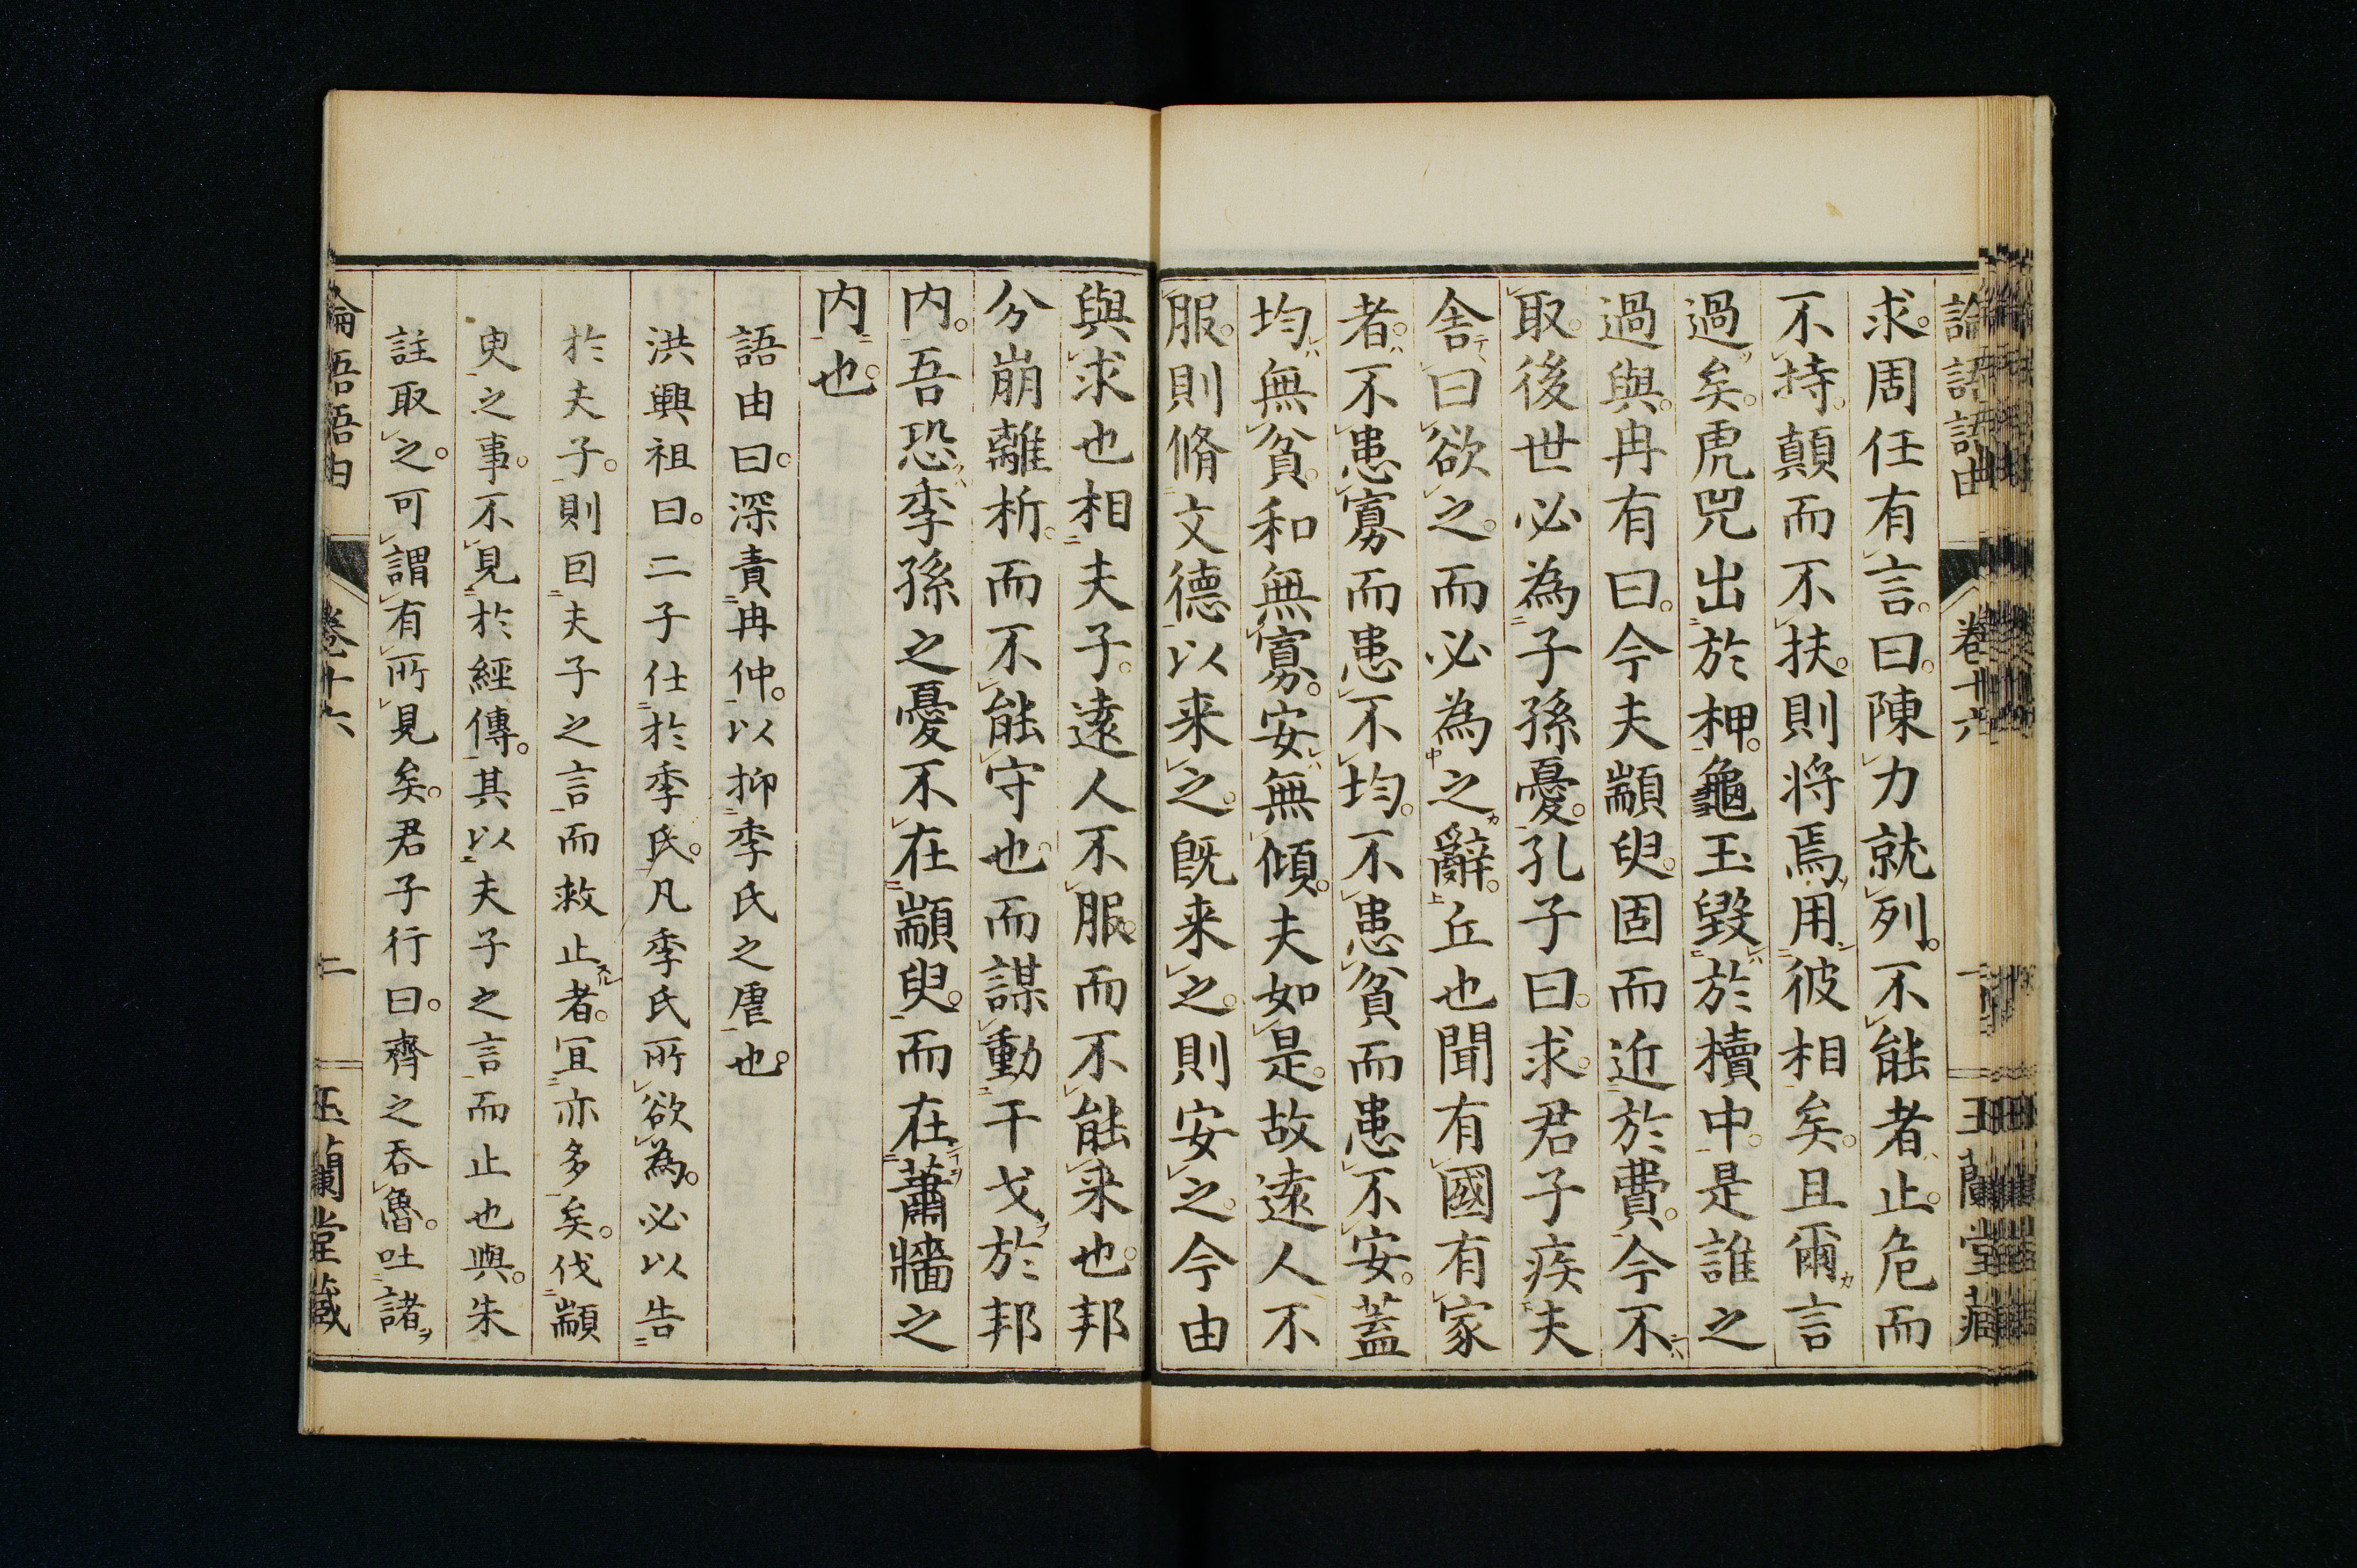 論語語由 卷十六 玉蘭堂藏
求。周任有言。曰。陳力就列。不能者止。危而
不持。顛而不扶。則将焉用彼相矣。且爾言
過矣。虎兕出於柙。龜玉毀於櫝中。是誰之
過與。冉有曰。今夫顓臾。固而近於費。今不
取。後世必為子孫憂。孔子曰。求。君子疾夫
舎曰欲之。而必為之辭。丘也聞有國有家
者。不患寡而患不均。不患貧而患不安。蓋
均無貧。和無寡。安無傾。夫如是。故遠人不
服。則脩文德以来之。既来之。則安之。今由
與求也相夫子。遠人不服。而不能来也。邦
分崩離析。而不能守也。而謀動干戈於邦
内。吾恐季孫之憂不在顓臾。而在蕭牆之
内也。
語由曰。深責冉仲。以抑季氏之虐也。
洪興祖曰。二子仕於季氏。凡季氏所欲為。必以告
於夫子。則因夫子之言而救止者。宜亦多矣。伐顓
臾之事。不見於經傳。其以夫子之言而止也與。朱
註取之。可謂有所見矣。君子行曰。齊之呑魯。吐諸
論語語由 卷十六 二 玉蘭堂藏